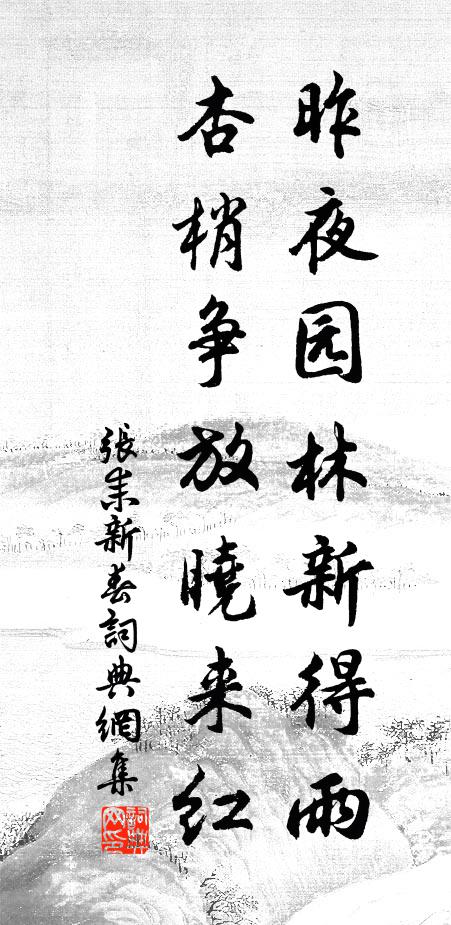 昨夜园林新得雨
杏梢争放曉来红
張耒新春詞典網集